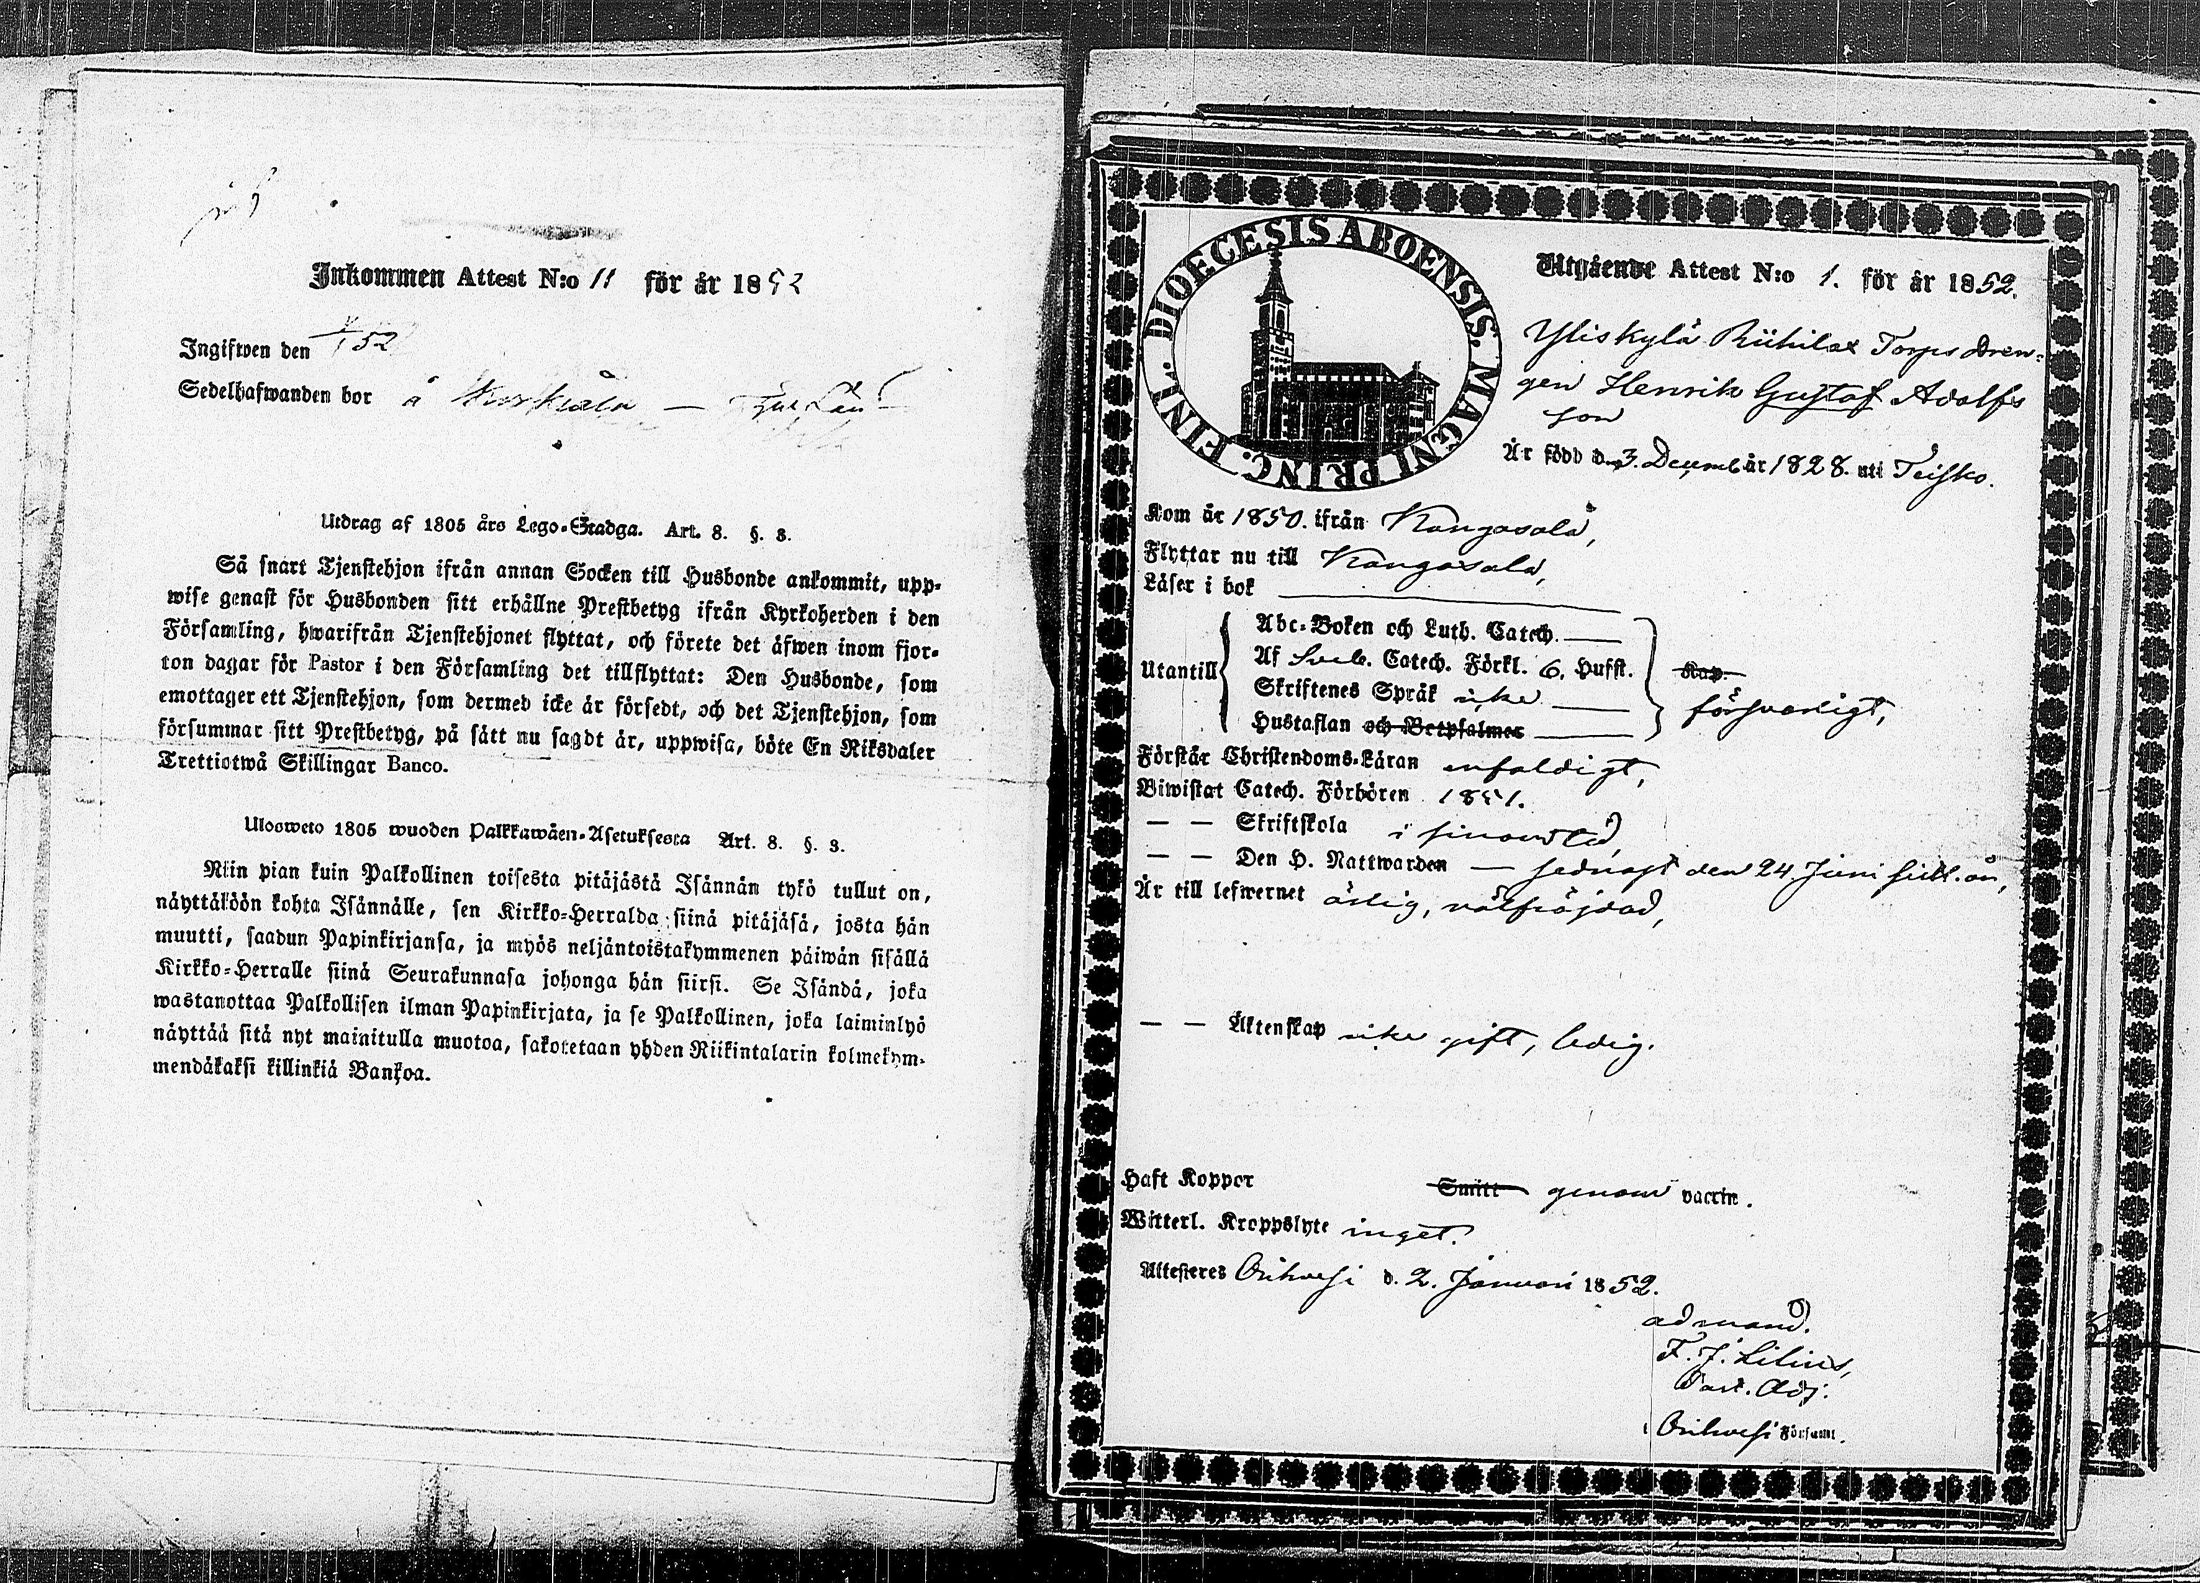 Inkommen Attest N:o 11 för år 1852
Ingifwen den 52
Sedelhafwanden bor å
Utdrag af 1805 års Lego-Stadga. Art. 8. §. 3.
Så snart Tjenstehjon ifrån annan Socken till Husbonde ankommit, upp-
wise genast för Husbonden sitt erhållne Prestbetyg ifrån Kyrkoherden i den
Församling, hwarifrån Tjenstehjonet flyttat, och förete det äfwen inom fjor-
ton dagar för Pastor i den Församling det tillflyttat: Den Husbonde, som
emottager ett Tjenstehjon, som dermed icke är försedt, och det Tjenstehjon, som
försummar sitt Prestbetyg, på sätt nu sagdt är, uppwisa, böte En Riksdaler
Trettiotwå Skillingar Banco.
Ulosweto 1805 wuoden Palkkawäen-Asetuksesta Art. 8. §. 3.
Niin pian kuin Palkollinen toisesta pitäjästä Isännän tykö tullut on,
näyttäköön kohta Isännälle, sen Kirkko-Herralda siinä pitäjäsä, josta hän
muutti, saadun Papinkirjansa, ja myös neljäntoistakymmenen päiwän sisällä
Kirkko-Herralle siinä Seurakunnasa johonga hän siirsi. Se Isändä, joka
wastanottaa Palkollisen ilman Papinkirjata, ja se Palkollinen, joka laiminlyö
näyttää sitä nyt mainitulla muotoa, sakotetaan yhden Riikintalarin kolmekym-
mendäkaksi killinkiä Bankoa.
DIOECESIS ABOENSIS. MAGNI PRINC. FINL.
Utgående Attest N:o 1. för år 1852.
Yliskylä Riihilax Torps dren-
gen Henrik Gustaf Adolfs
son
Är född d. 3. Decemb år 1828. uti Teisko.
Kom år 1850. ifrån Kangasala,
Flyttar nu till Kangasala,
Läser i bok
Utantill
Abc-Boken och Luth. Catech.
Af Sveb. Catech. Förkl. 6. Hufst.
Skriftenes Språk icke
Hustaflan och Botpsalmer
Kap.
försvarligt,
Förstår Christendoms-Läran enfaldigt,
Biwistat Catech. Förhören 1851.
— — Skriftskola i sinom tid,
— — Den H. Nattwarden — sednast den 24. Juni sidl. år,
Är till lefwernet ärlig, välfräjdad,
— — Äktenskap icke gift, ledig.
Haft Koppor Smitt genom vaccin.
Witterl. Kroppslyte inget.
Attesteres Orihvesi d. 2. Januari 1852.
ad mand.
F. J. Lilius,
Past. Adj.
i Orihvesi Församl.